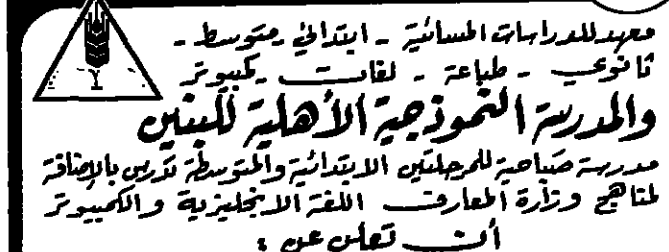 معهد للدراسات المسائية - ابتدائي - متوسط -
ثانوي - طباعة - لغات - كمبيوتر
والمدرسة النموذجية الأهلية للبنين
مدرسة صباحية للمرحلتين الابتدائية والمتوسطة تدرس بالإضافة
لمناهج وزارة المعارف اللغة الانجليزية والكمبيوتر
أن تعلن عن :